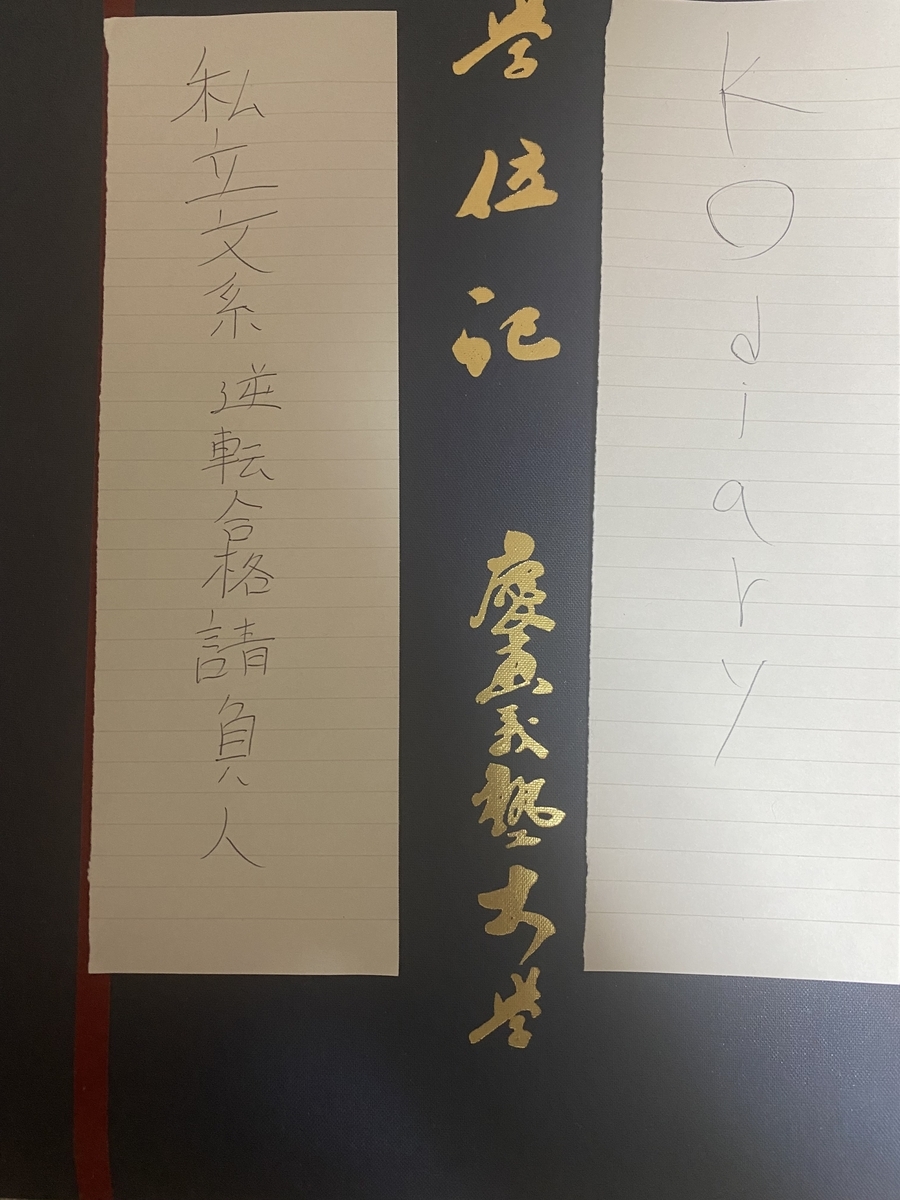 KOdiary
學位記 慶應義塾大學
私立文系 逆転合格請負人